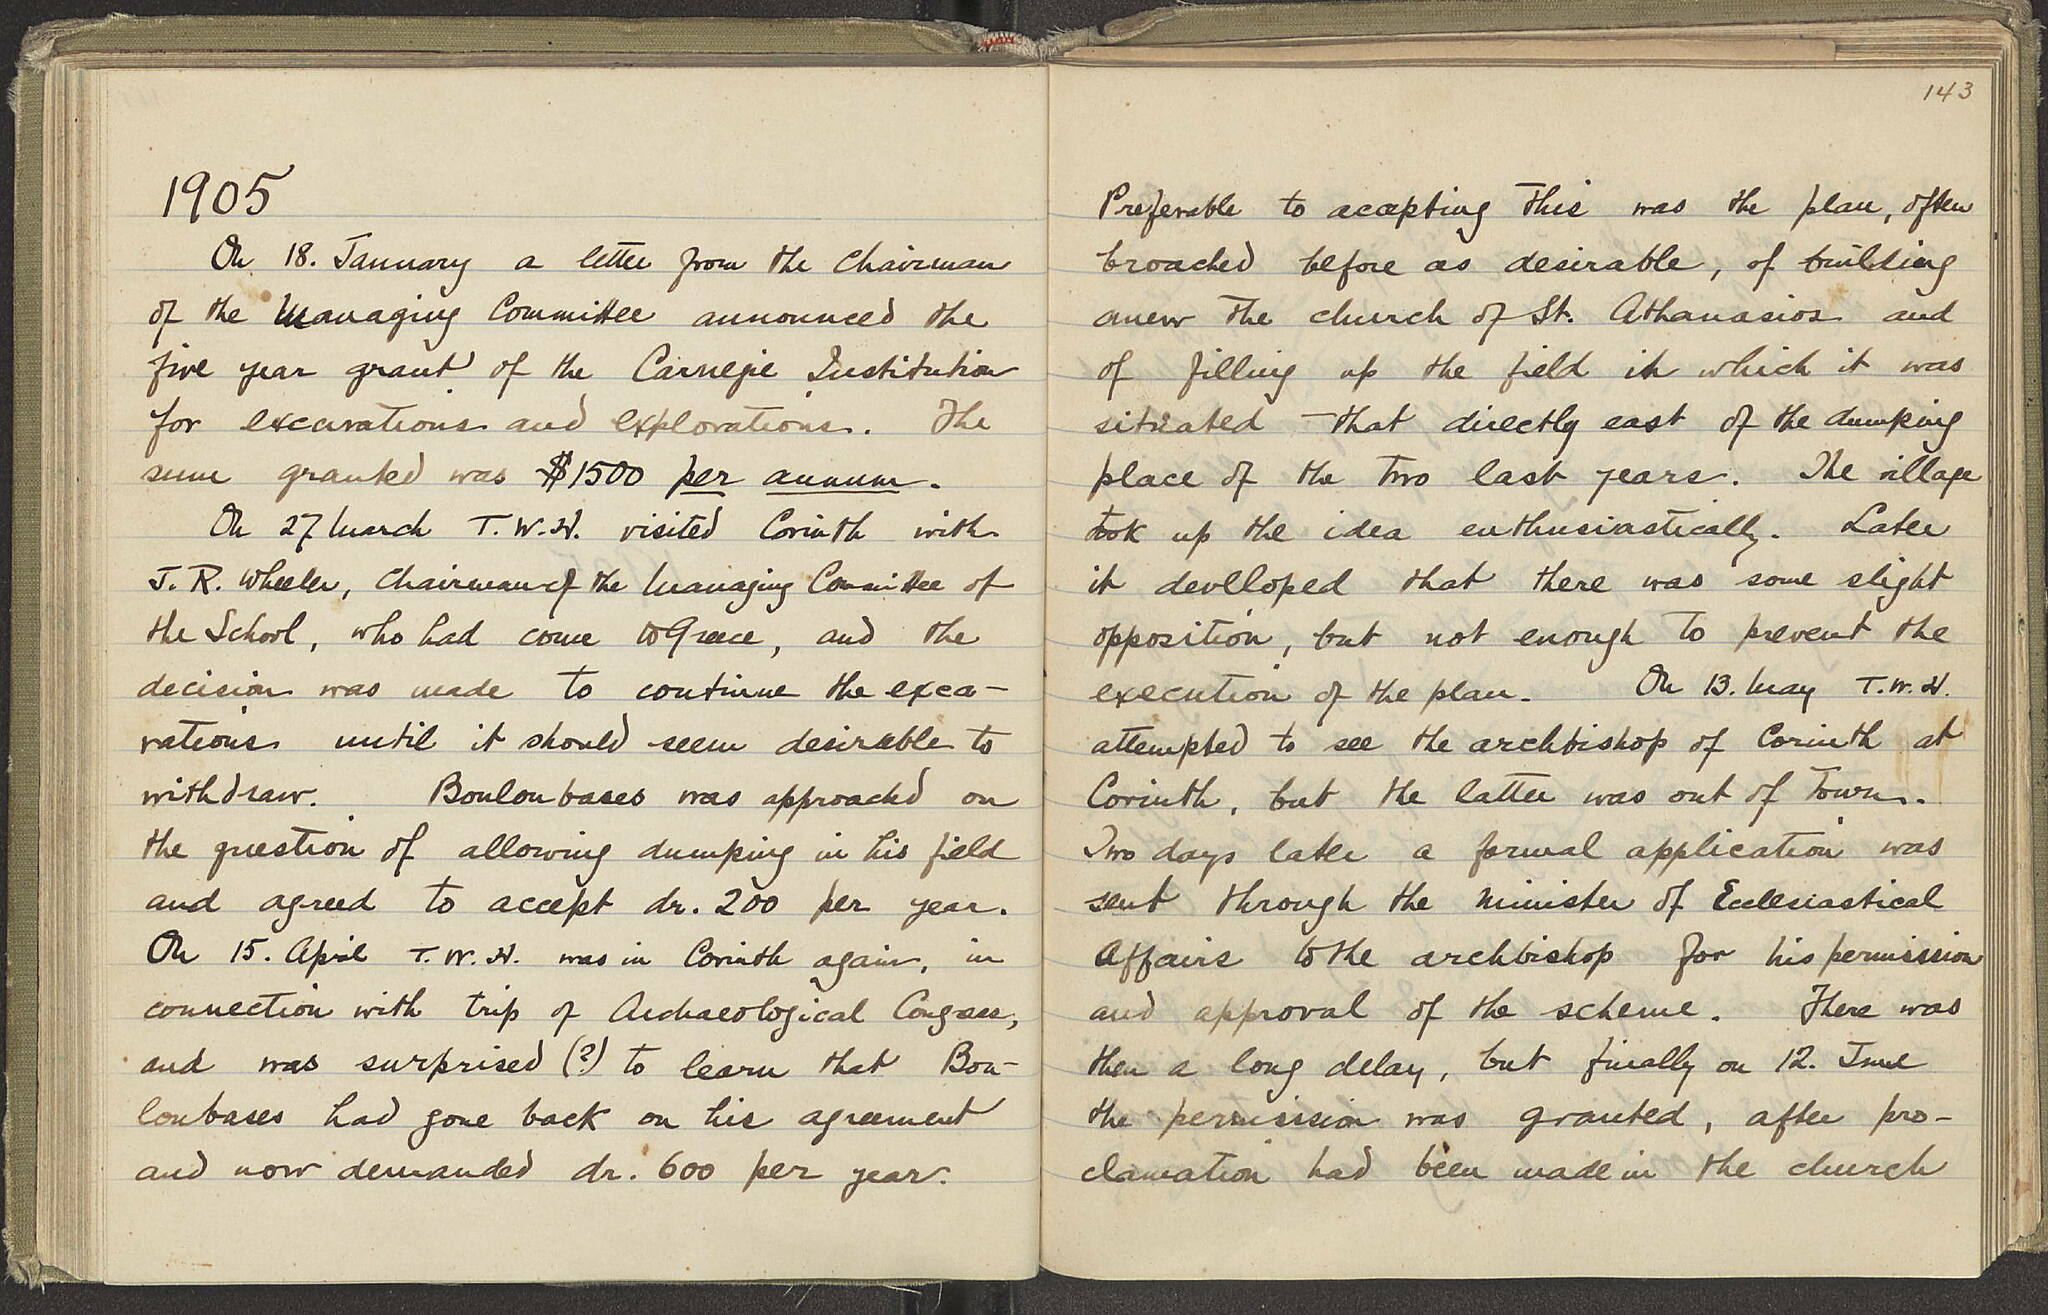 1905
On 18. January a letter from the Chairman
of the Managing Committee announced the
five year grant of the Carnegie Institution
for excavations and explorations. The
sum granted was $1500 per annum.
On 27 March T.W.H. visited Corinth with
J. R. Wheeler, Chairman of the Managing Committee of
the School, who had come to Greece, and the
decision was made to continue the exca-
vations until it should seem desirable to
withdraw. Bouloubases was approached on
the question of allowing dumping in his field
and agreed to accept dr. 200 per year.
On 15. April T.W.H. was in Corinth again, in
connection with trip of Archaeological Congress,
and was surprised (?) to learn that Bou-
loubases had gone back on his agreement
and now demanded dr. 600 per year.
143
Preferable to accepting this was the plan, often
broached before as desirable, of building
anew the church of St. Athanasios and
of filling up the field in which it was
situated – that directly east of the dumping
place of the two last years. The village
took up the idea enthusiastically. Later
it devlloped that there was some slight
opposition, but not enough to prevent the
execution of the plan. On 13. May T.W.H.
attempted to see the archbishop of Corinth at
Corinth, but the latter was out of town.
Two days later a formal application was
sent through the Minister of Ecclesiastical
Affairs to the archbishop for his permission
and approval of the scheme. There was
then a long delay, but finally on 12. June
the permission was granted, after pro-
clamation had been made in the church